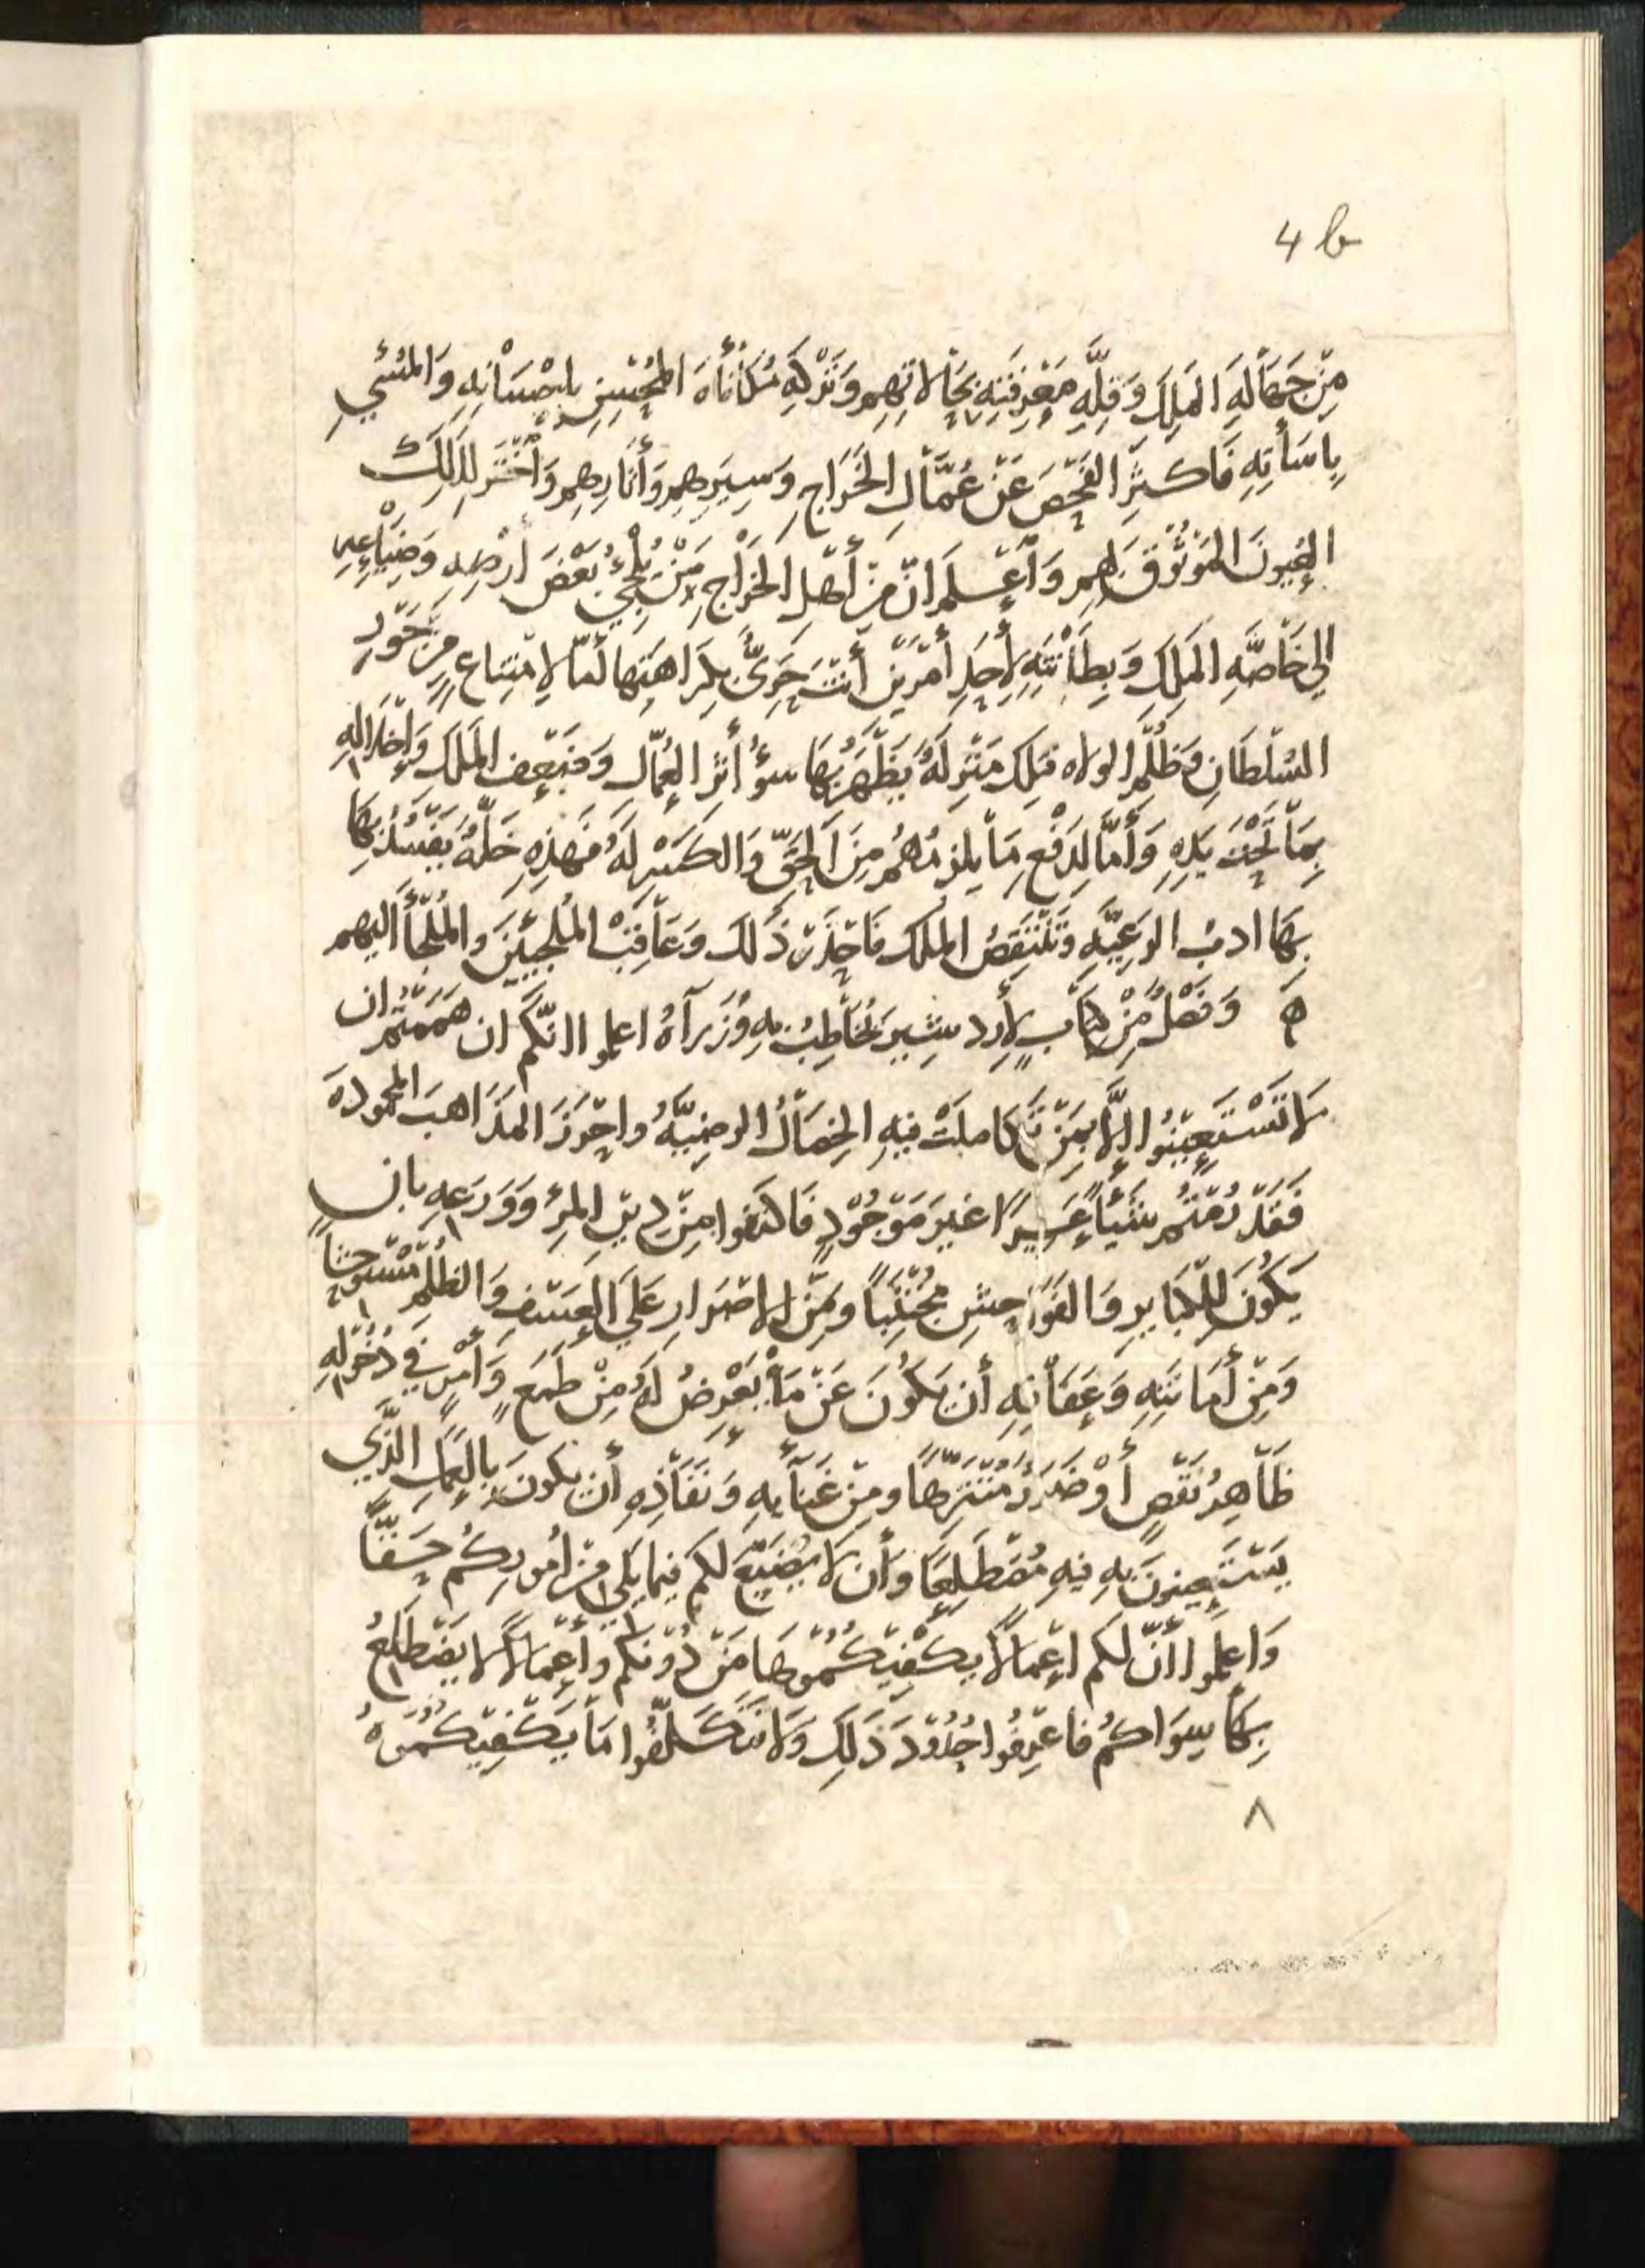 4 b
مِنْ جَهَالَهِ المَلِكَ وَقِلَّهِ مَعْرِفَتِهِ بِحَالاتِهِم وَتَرْكِهِ مُكَأفَأهَ المُحْسِنِ بإحْسَانِهِ وَالمُسْيِ
بِاسَأتِهِ فَاكثِرِ الفَحْصَ عَنْ عُمَّالِ الخَرَاجِ وَسِيَرِهِم وَأثَارِهِم وَأخْتَر لِذَلِكَ
العُيونَ المَوثُوْقَ بهم وَأعْلَم انّ مِنْ أهْلِ الخَرْاجِ مَنْ يُلْجِئُ بَعْضَ أرضِهِ وَضِيَاعِهِ
الي خَاصَّهِ المَلِكِ وَبِطَأنَتِهِ لأحَدِ أمْرَيْن أنْتَ حَرَىٌّ بِكَرَاهَتِهَا أمّا لامتِنَاعٍ مِن جَوْرِ
السُلْطَانِ وَظُلْمِ الولاه فتِلكَ مَنْزِلَهٌ يَظْهَرُ بِهَا سوُ أثرِ العُمّالِ وَضَعْفِ المَلَكَ وَإخلالِهِ
بِمَا تَحْتَ يَدِهِ وَأمَّا لدَفْعِ مَا يلزمُهُم مِنَ الحَقِّ وَالكَسْرِ لَهُ فهَذِهِ خَلّهٌ يَفْسُدُ بِهَا
بِهَا ادبُ الرَعِيَّهِ وَتَنْتَقِصُ الملك فَاحْذَرْ ذَلكَ وَعَاقِبْ المُلْجِيئنَ والمُلْجَأ اليهم
ه وَفَصْلٌ مِنْ كِتَابٍ لأرد شِيرَ يُخَاطِبُ بهِ وُزَرَآءَهُ اعلموا انّكم ان هَمَمْتُم ان
لاتَسْتَعِيْنُوا إلّا بِمَنْ تَكاملَتْ فيهِ الخِصَالُ الرضِيَّهُ واحْرَزَ المذَاهبَ المحمودهَ
فَقَدْ رُمْتُم شَيْأً عَسِيرًا غيرَ مَوْجُوْدٍ فَاكتَفوا مِنْ دِيْنِ المرْءِ وَوَرَعِهِ بان
يَكُونَ للكَبَايرِ وَالفَوَاحِشِ مُجْتَنِبًا ومِنْ الاصْرَارِ عَلَي العَسْفِ وَالظُلْمِ مُسْتَوْحِشًا
وَمِنْ أمَانَتِهِ وَعَفَافِهِ أن يَكُونَ عَنْ مَا يَعْرِضُ لَهُ مِنْ طَمَعٍ وَأمْرٍ في دُخُوْلِهِ
ظَاهِرُ نَقْصٍ أوْ ضَرَرٍ مُتَنَزِّهًا ومِنْ غَنَآيهِ وَنَفَاذِهِ أن يكونَ بِالعَمَلِ الّذِي
يَسْتَعِينونَ بِهِ فيهِ مُضْطَلِعًا وَأن لَا يُضَيّعَ لكم فيما يَلي مِنْ أموركُم حَقًّا
وَاعلموا أنّ لكم أعْمَالاً يكفِيْكُمُوْهَا مَنْ دُوْنَكُم وأعْمَالاً لا يَضْطَلِعُ
بِهَا سِوَاكُم فاعرِفُوا حُدُوْدَ ذَلِكَ وَلا تَتَكَلّفُوا مَا يَكْفِيْكُمُوهُ
٨